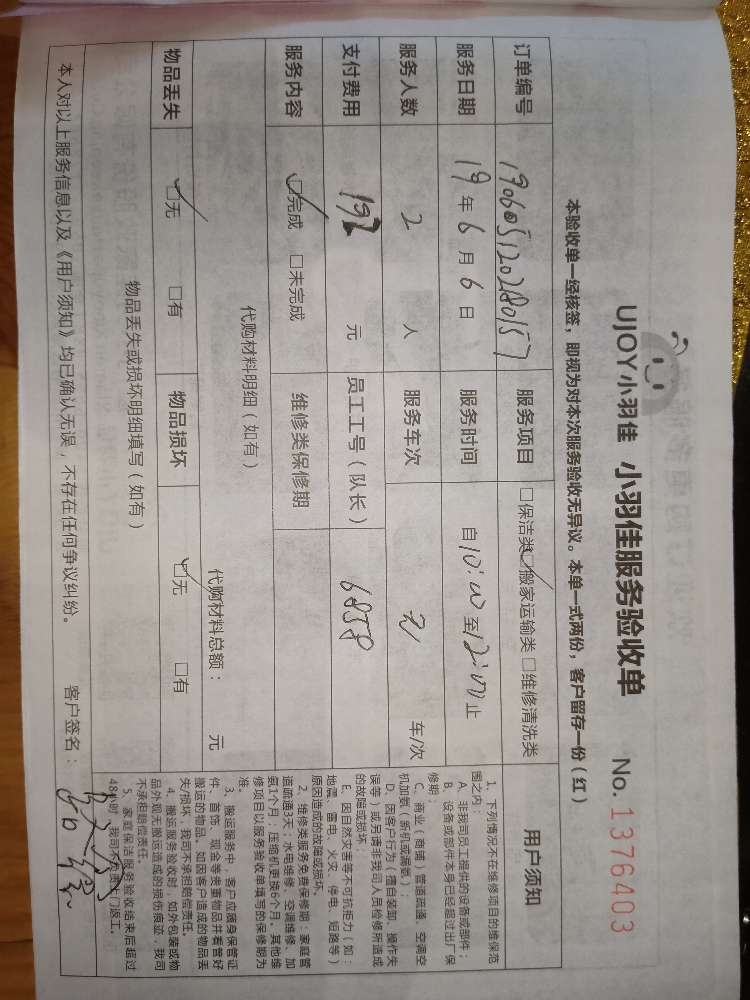 UJOY小羽佳 小羽佳服务验收单 No. 1376403
本验收单一经核签，即视为对本次服务验收无异议。本单一式两份，客户留存一份（红）
订单编号 服务项目 □保洁类 ☑搬家运输类 □维修清洗类
服务日期 19年6月6日 服务时间 自10:00至12:00止
服务人数 2 人 服务车次 车/次
支付费用 192 元 员工工号（队长） 6858
服务内容 ☑完成 □未完成 维修类保修期
代购材料明细（如有）
代购材料总额： 元
物品丢失 ☑无 □有 物品损坏 ☑无 □有
物品丢失或损坏明细填写（如有）
本人对以上服务信息以及《用户须知》均已确认无误，不存在任何争议纠纷。 客户签名：
用户须知
1、下列情况不在维修项目的维保范
围之内：
A、非我司员工提供的设备或部件；
B、设备或部件本身已经超过出厂保
修期；
C、商业（商铺）管道疏通、空调空
机加氨（新机或漏氨）；
D、因客户行为（擅自装卸、操作失
误等）或另请非我司人员检修所造成
的故障或损坏。
E、因自然灾害等不可抗拒力（如：
地震、雷电、火灾、停电、短路等）
原因造成的故障或损坏。
2、维修类服务免费保修期：家庭管
道疏通3天；水电维修、空调维修、加
氨1个月；压缩机更换6个月。其他维
修项目以服务验收单填写的保修期为
准。
3、搬运服务中，客户应随身保管证
件、首饰、现金等贵重物品并看管好
搬运的物品。如因客户造成的物品丢
失/损坏，我司不承担赔偿责任。
4、搬运服务验收时，如外包装或物
品外观无搬运造成的损伤痕迹，我司
不承担赔偿责任。
5、家庭保洁服务验收结束后超过
48小时，我司不负责上门返工。